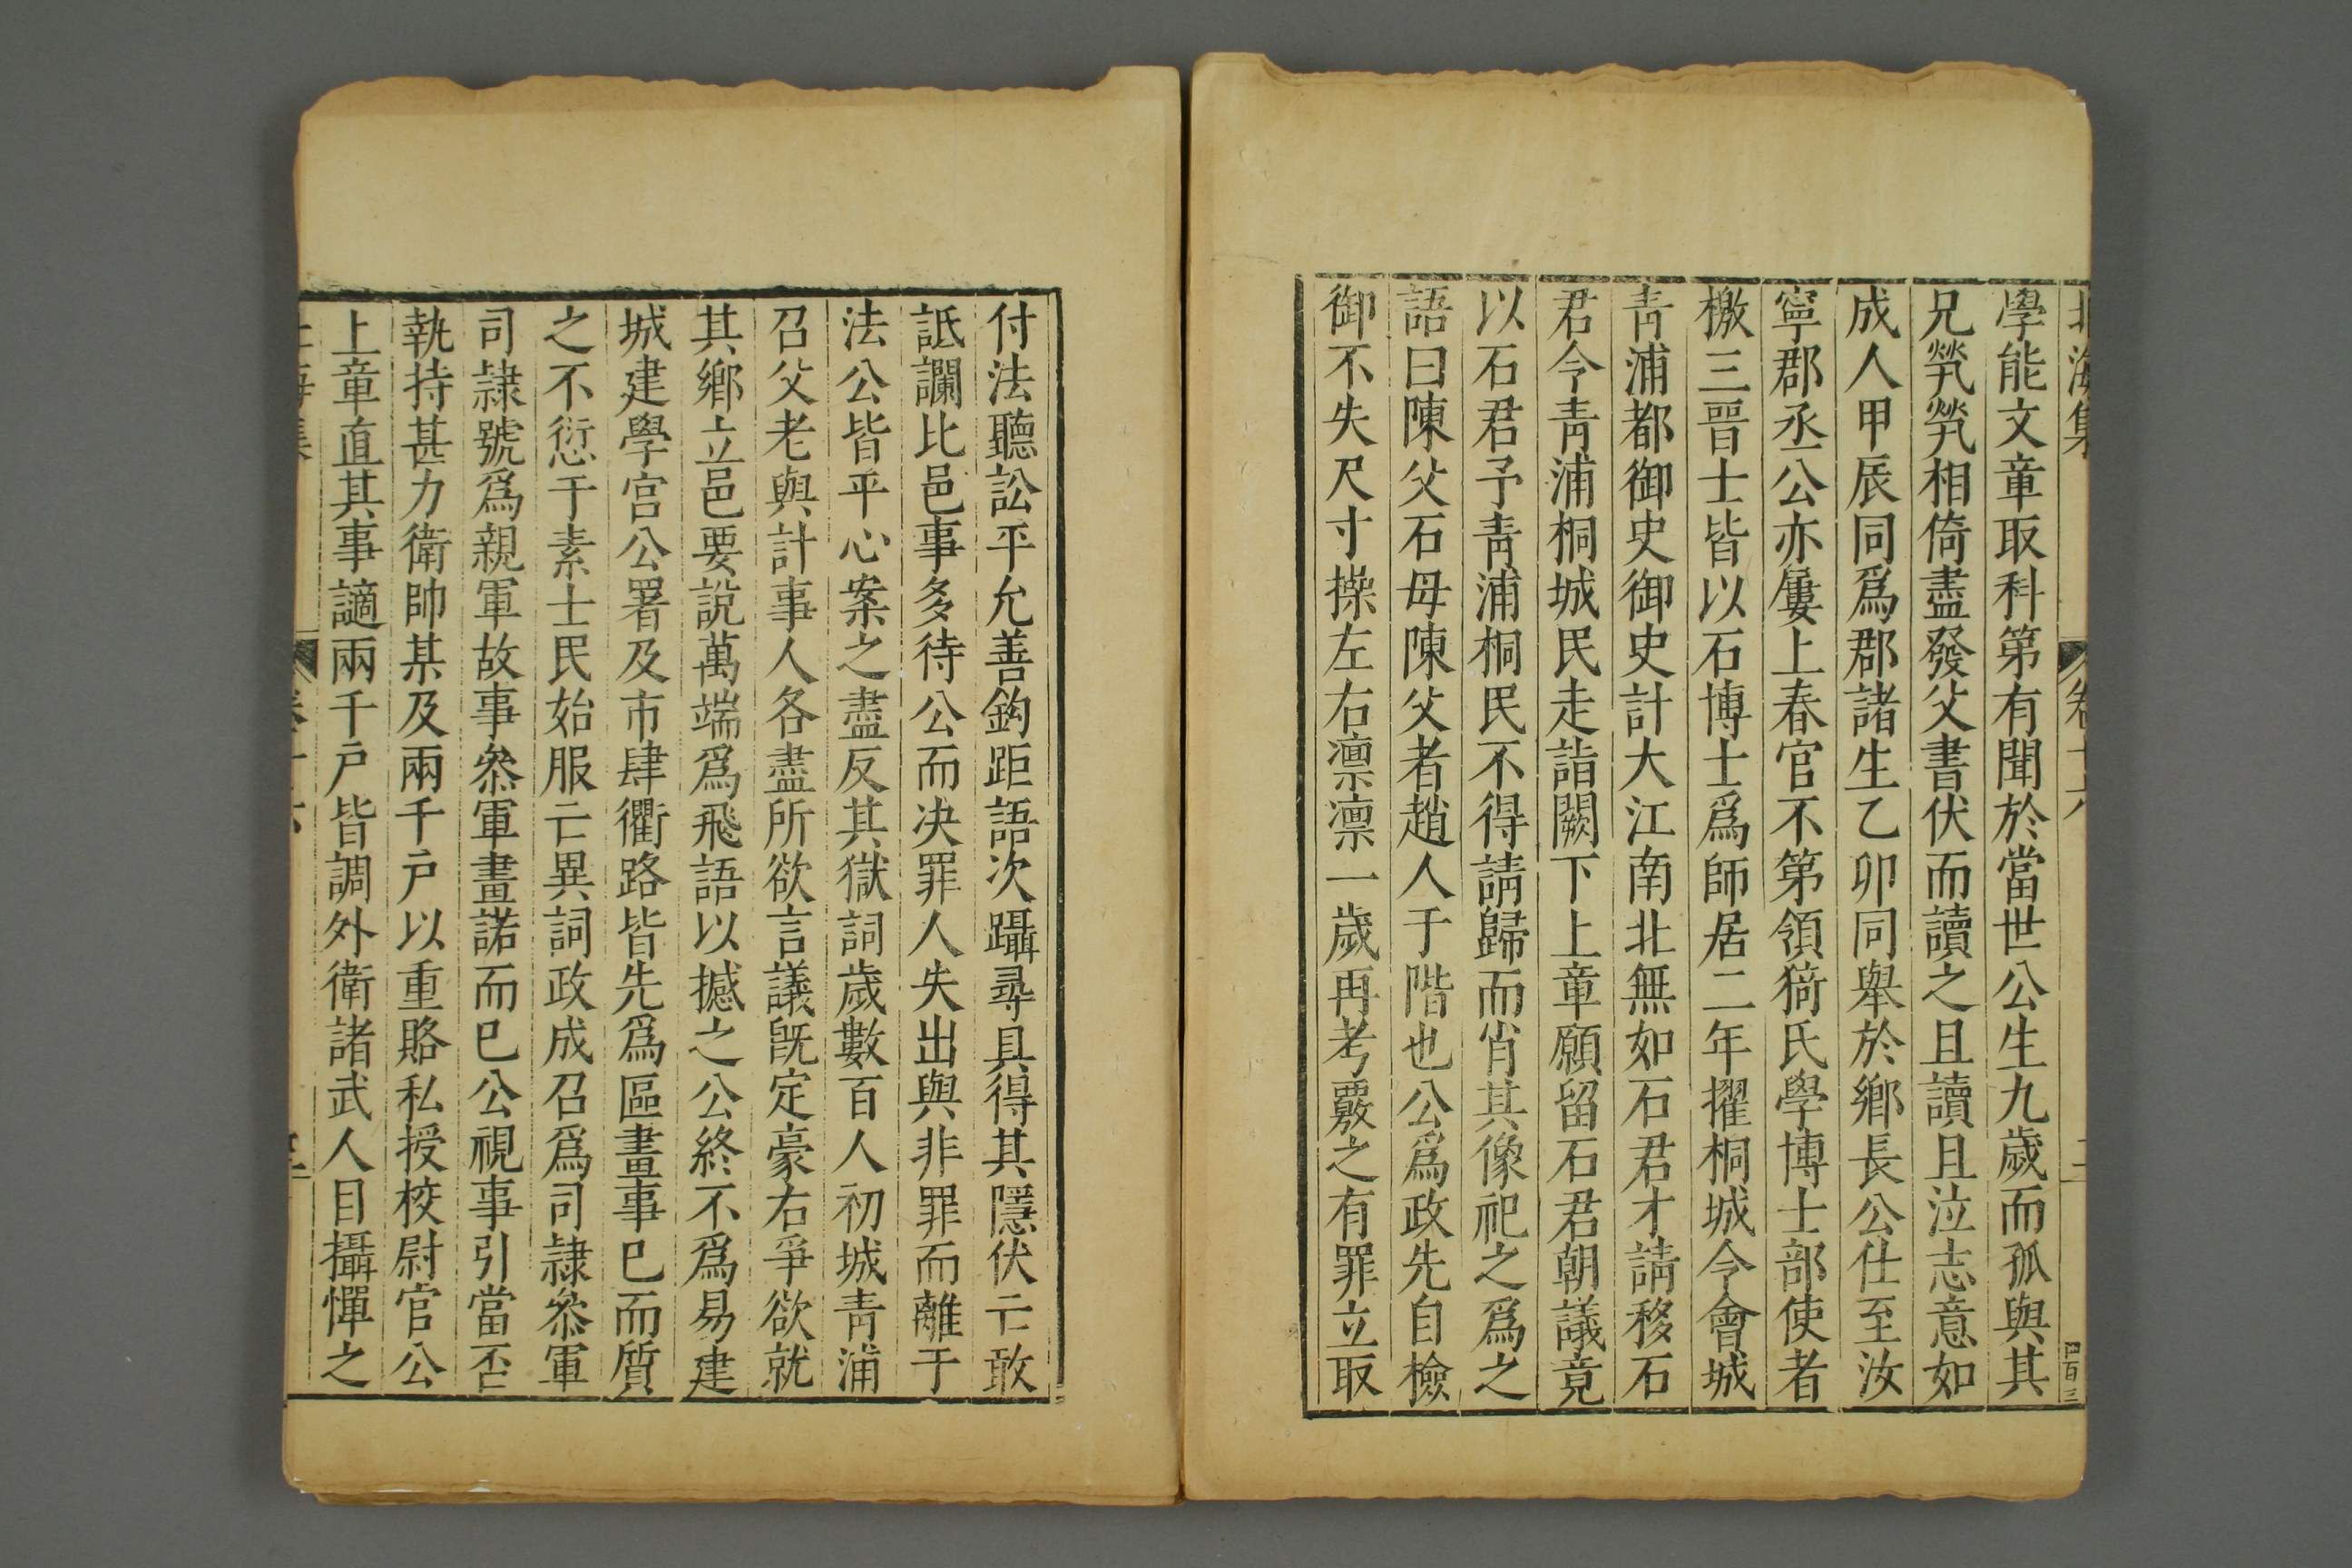 北海集 卷十六 二 四百三
學能文章取科第有聞於當世公生九歲而孤與其
兄煢煢相倚盡發父書伏而讀之且讀且泣志意如
成人甲辰同爲郡諸生乙卯同舉於鄉長公仕至汝
寧郡丞公亦屢上春官不第領猗氏學博士部使者
檄三晉士皆以石博士爲師居二年擢桐城令會城
青浦都御史御史計大江南北無如石君才請移石
君令青浦桐城民走詣闕下上章願留石君朝議竟
以石君予青浦桐民不得請歸而肖其像祀之爲之
語曰陳父石母陳父者趙人于階也公爲政先自檢
御不失尺寸操左右凛凛一歲再考覈之有罪立取
付法聽訟平允善鈎距語次躡尋具得其隱伏亡敢
詆讕比邑事多待公而决罪人失出與非罪而離于
法公皆平心案之盡反其獄詞歲數百人初城青浦
召父老與計事人各盡所欲言議旣定豪右爭欲就
其鄉立邑要說萬端爲飛語以撼之公終不爲易建
城建學宮公署及市肆衢路皆先爲區畫事已而質
之不愆于素士民始服亡異詞政成召爲司隸叅軍
司隸號爲親軍故事叅軍畫諾而已公視事引當否
執持甚力衛帥某及兩千戶以重賂私授校尉官公
上章直其事謫兩千戶皆調外衛諸武人目攝憚之